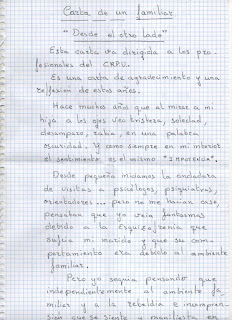 Carta de un familiar
"Desde el otro lado"
Esta carta va dirigida a los pro-
fesionales del CRPU.
Es una carta de agradecimiento y una
reflexión de estos años.
Hace muchos años que al mirar a mi
hija a los ojos veo tristeza, soledad,
desamparo, rabia, en una palabra
oscuridad. Y como siempre en mi interior
el sentimiento es el mismo "IMPOTENCIA".
Desde pequeña iniciamos la andadura
de visitas a psicólogos, psiquiatras,
orientadores... pero no me hacían caso,
pensaban que yo veía fantasmas
debido a la esquizofrenia que
sufría mi marido y que su com-
portamiento era debido al ambiente
familiar.
Pero yo seguía pensando que
independientemente al ambiente fa-
miliar y a la rebeldía e incompren-
sión que se siente y manifiesta en